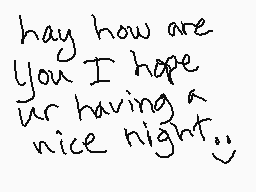 hay how are
you I hope
ur having a
nice night